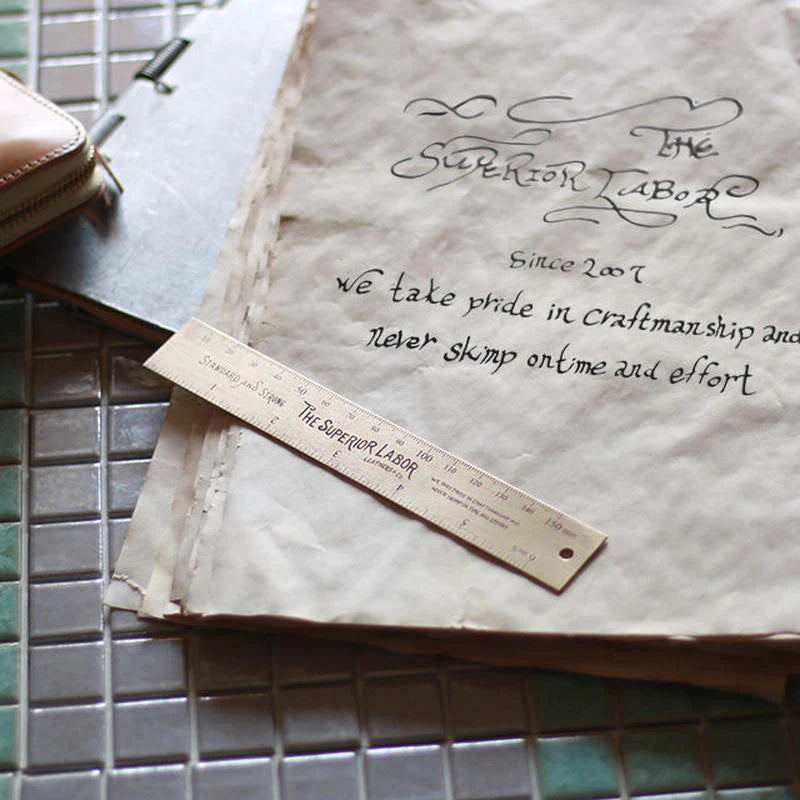 THE
SUPERIOR LABOR
Since 2007
we take pride in craftmanship and
never skimp ontime and effort
10 20 30 40 50 60 70 80 90 100 110 120 130 140 150 mm
STANDARD AND STRONG
THE SUPERIOR LABOR
LEATHERS & Co.
WE TAKE PRIDE IN CRAFTMANSHIP AND
NEVER SKIMP ON TIME AND EFFORT
1 2 3 4 5 6 inch